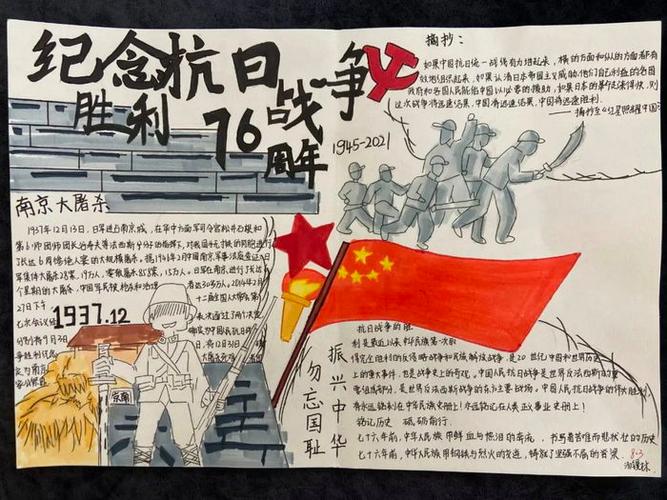 纪念抗日战争
胜利76周年
1945-2021
摘抄：
如果中国抗日统一战线有力组起来，横的方面和纵的方面都有
效地组织起来，如果认清日本帝国主义威胁他们自己利益的各国
政府和各国人民能给中国以必要的援助，如果日本的革命起来得快，则
这次战争将迅速结束，中国将迅速胜利。
——摘抄至《红星照耀中国》
南京大屠杀
1937年12月13日，日军进占南京城，在华中方面军司令官松井石根和
第6师团师团长谷寿夫等法西斯分子的指挥下，对我国手无寸铁的同胞进行
了长达6周惨绝人寰的大规模屠杀。
日军集体大屠杀28案，19万人，零散屠杀858案，15万人。日军在南京进行了长达
个星期的大屠杀，中国军民被枪杀和活埋
者达30多万人。2014年2月
27日下午
十二届全国人大常委
七次会议
表决通过了两个决定
分别将9月3日
确定为中国人民抗日战
争胜利纪念
日，将12月13日
1937.12
京南
勿忘国耻
振兴中华
抗日战争的胜
利是最近以来中华民族第一次取
得完全胜利的反侵略战争和民族解放战争，是20世纪中国和世界历史
上的重大事件，也是战争史上的奇观。中国人民抗日战争是世界反法西斯战争的重
要组成部分，是世界反法西斯战争的东方主要战场。中国人民抗日战争的伟大胜利，
将永远铭刻在中华民族史册上！永远铭记在人类正义事业史册上！
铭记历史 砥砺前行。
七十六年前，中华人民族用鲜血与热泪的奔流，书写着苦难而悲伏壮的历史
七十六年前，中华人民族用钢铁与烈火的交迸，铸就了坚强不屈的脊梁。
8.3